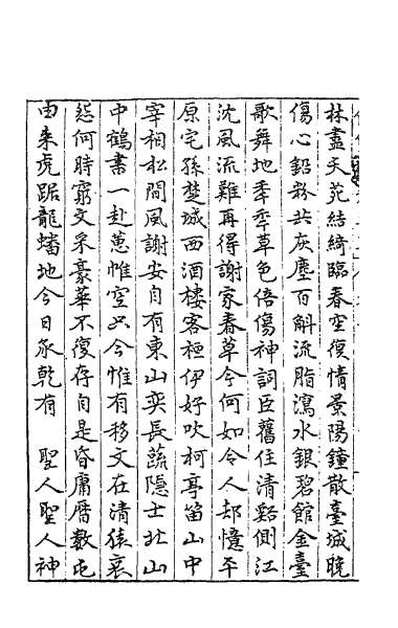 林盡天苑結綺臨春空復情景陽鐘散臺城曉
傷心鉛粉共灰塵百斛流脂瀉水銀碧館金臺
歌舞地秊秊草色倍傷神詞臣舊住清谿側江
沈風流難再得謝家春草今何如令人却憶平
原宅孫楚城西酒樓客桓伊好吹柯亭笛山中
宰相松間風謝安自有東山奕長蔬隱士北山
中鶴書一赴蕙帷空只今惟有移文在清猿哀
怨何時窮文采豪華不復存自是昏庸曆數屯
由来虎踞龍蟠地今日承乾有 聖人聖人神